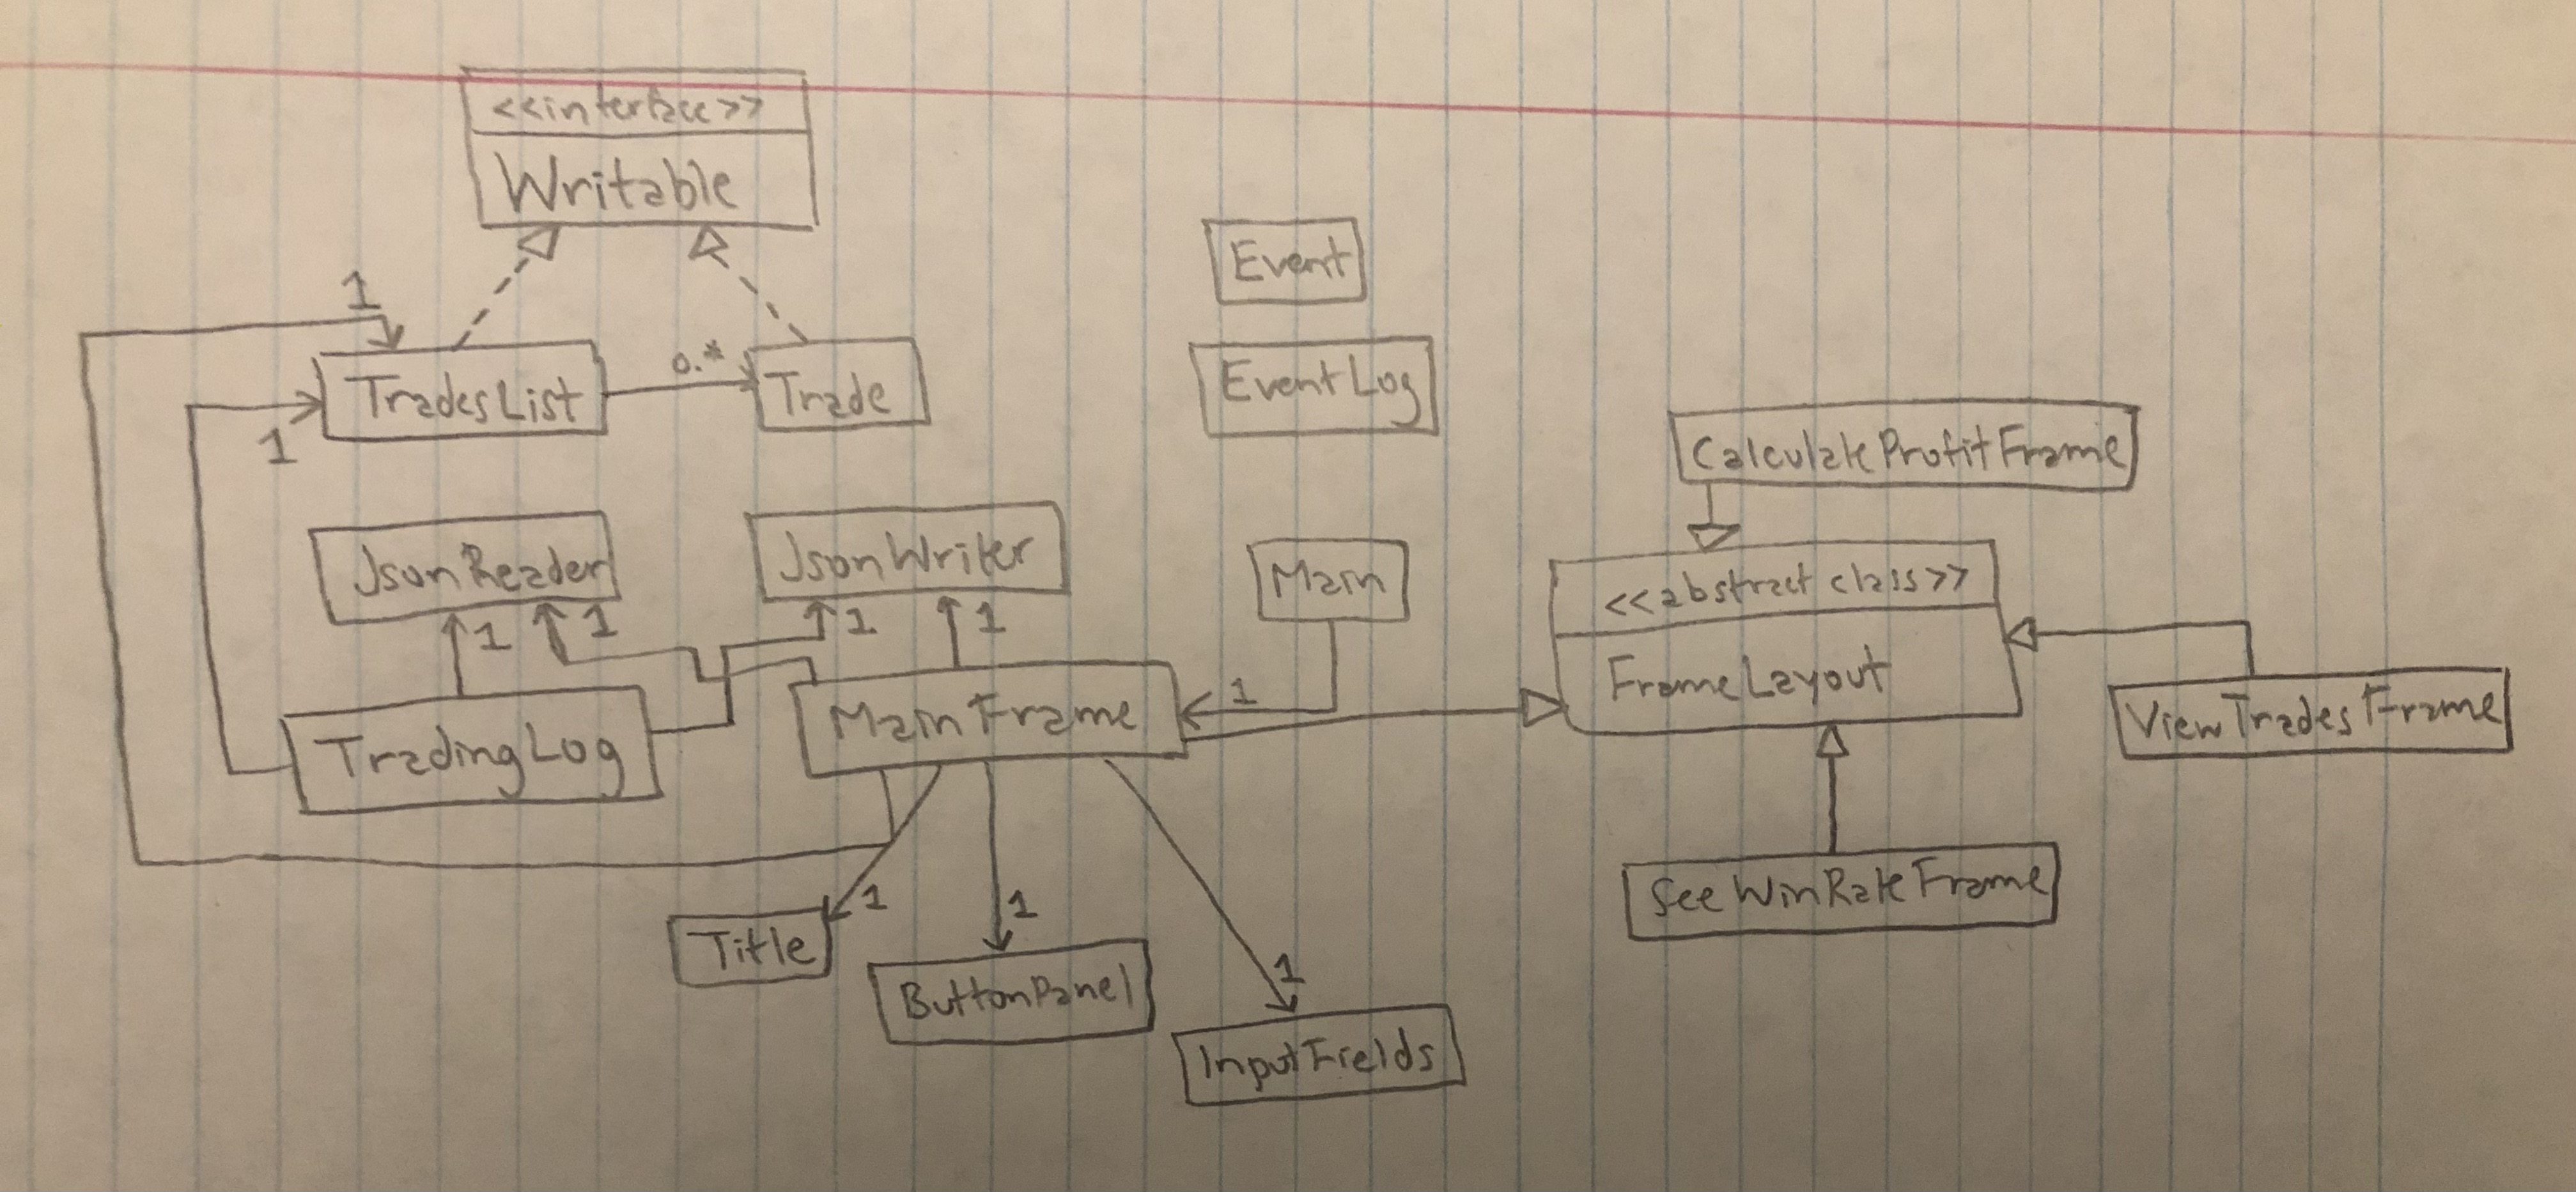 <<interface>>
Writable
Event
1
TradesList
0.*
Trade
EventLog
1
CalculateProfitFrame
JsonReader
JsonWriter
Main
<<abstract class>>
FrameLayout
1
1
1
1
1
TradingLog
MainFrame
ViewTradesFrame
SeeWinRateFrame
1
1
1
Title
ButtonPanel
InputFields